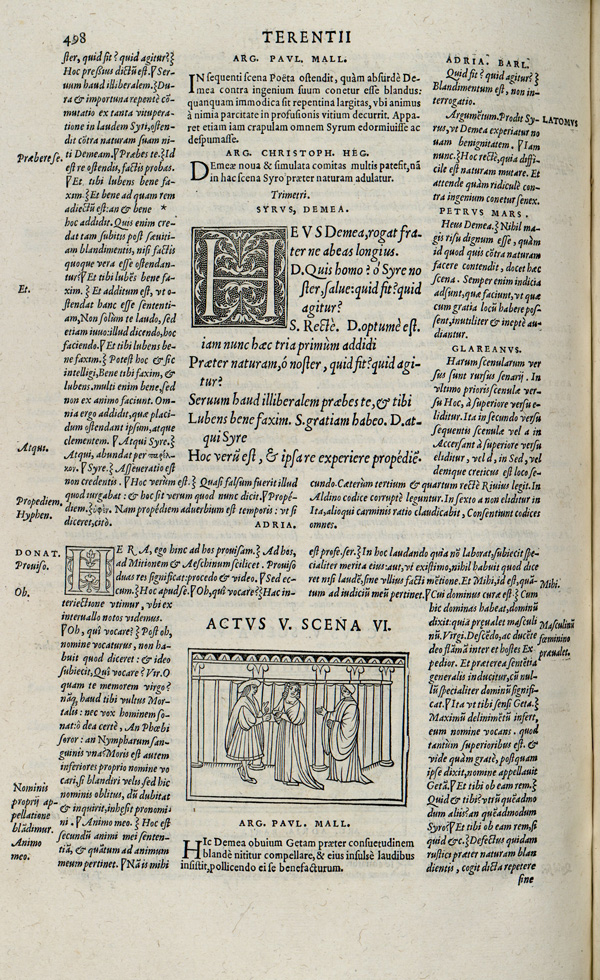 498
TERENTII
ster, quid fit? quid agitur?
Hoc pressius dictũ est. Ser-
uum haud illiberalem. Du-
ra & importuna repentè cõ-
mutatio ex tanta vitupera-
tione in laudem Syri, osten-
dit cõtra naturam suam ni-
ti Demeam. Præbes te. Id
est re ostendis, factis probas.
Et tibi lubens bene fa-
xim. Et bene ad quem rem
adiectũ est: an & bene *
hoc addidit. Quis enim cre-
dat tam subitis post sæuiti-
am blandimentis, nisi factis
quoque vera esse ostendan-
tur? Et tibi lubẽs bene fa-
xim. Et additum est, vt o-
stendat hanc esse sententi-
am, Non solùm te laudo, sed
etiam iuuo: illud dicendo, hoc
faciendo. Et tibi lubens be-
ne faxim. Potest hoc & sic
intelligi, Bene tibi faxim, &
lubens. multi enim bene, sed
non ex animo faciunt. Om-
nia ergo addidit, quæ placi-
dum ostendant ipsum, atque
clementem. Atqui Syre.
Atqui, abundat per
Syre. Asseueratio est
non credentis. Hoc verùm est. Quasi falsum fuerit illud
quod iurgabat: & hoc sit verum quod nunc dicit. Propé-
diem. Nam propédiem aduerbium est temporis: vt si
diceret, citò.
Præbere se.
Et.
Atqus.
Propediem.
Hyphen.
ARG. PAVL. MALL.
IN sequenti scena Poëta ostendit, quàm absurdè De-
mea contra ingenium suum conetur esse blandus:
quanquam immodica sit repentina largitas, vbi animus
à nimia parcitate in profusionis vitium decurrit. Appa-
ret etiam iam crapulam omnem Syrum edormiuisse ac
despumasse.
ARG. CHRISTOPH. HEG.
DEmeæ noua & simulata comitas multis patefit, nã
in hac scena Syro præter naturam adulatur.
Trimetri.
SYRVS, DEMEA.
HEVS Demea, rogat fra-
ter ne abeas longius.
D. Quis homo? ô Syre no
ster, salue: quid fit? quid
agitur?
S. Rectè. D. optumè est.
iam nunc hæc tria primùm addidi
Præter naturam, ô noster, quid fit? quid agi-
tur?
Seruum haud illiberalem præbes te, & tibi
Lubens bene faxim. S. gratiam habeo. D. at-
qui Syre
Hoc verũ est, & ipsa re experiere propédiẽ.
ADRIA. BARL.
Quid fit? quid agitur?
Blandimentum est, non in-
terrogatio.
LATOMVS
Argumẽtum. Prodit Sy-
rus, vt Demea experiatur no
uam benignitatem. Iam
nunc. Hoc rectè, quia diffi-
cile est naturam mutare. Et
attende quàm ridiculè con-
tra ingenium conetur senex.
PETRVS MARS.
Heus Demea. Nihil ma-
gis risu dignum esse, quàm
id quod quis cõtra naturam
facere contendit, docet hæc
scena. Semper enim indicia
adsunt, quæ faciunt, vt quæ
cum gratia locũ habere pos-
sent, inutiliter & ineptè au-
diantur.
GLAREANVS.
Harum scenularum ver
sus sunt rursus senarij. In
vltimo prioris scenulæ ver-
su Hoc, à superiore versu e-
liditur. Ita in secundo versu
sequentis scenulæ vel a in
Accersant à superiore versu
eliditur, vel d, in Sed, vel
denique creticus est loco se-
cundo. Cæterùm tertium & quartum rectè Riuius legit. In
Aldino codice corruptè leguntur. In sexto a non eliditur in
Ita, alioqui carminis ratio claudicabit, Consentiunt codices
omnes.
ADRIA.
DONAT.
Prouiso.
Ob.
HERA, ego hinc ad hos prouisam. Ad hos,
ad Mitionem & Aeschinum scilicet. Prouiso
duas res significat: procedo & video. Sed ec-
cum. Hoc apud se. Oh, quì vocare? Hac in-
teriectione vtimur, vbi ex
interuallo notos videmus.
Oh, quì vocare? Post oh,
nomine vocaturus, non ha-
buit quod diceret: & ideo
subiecit, Quì vocare? Vir. O
quam te memorem virgo?
nãq, haud tibi vultus Mor-
talis: nec vox hominem so-
nat: ô dea certè, An Phœbi
soror: an Nympharum san-
guinis vna? Moris est autem
inferiores proprio nomine vo
cari, si blandiri velis, sed hic
nominis oblitus, dũ dubitat
& inquirit, inhesit pronomi
ni. Animo meo. Hoc est
secundũ animi mei senten-
tiã, & quãtum ad animum
meum pertinet. Nã is mihi
Nominis
proprij ap-
pellatione
blãdimur.
Animo
meo.
ACTVS V. SCENA VI.
ARG. PAVL. MALL.
HIc Demea obuium Getam præter consuetudinem
blandè nititur compellare, & eius insulsè laudibus
insistit, pollicendo ei se benefacturum.
est prose. ser. In hoc laudando quia nõ laborat, subiecit spe-
cialiter merita eius: aut, vt existimo, nihil habuit quod dice
ret nisi laudẽ, sine vllius facti mẽtione. Et Mihi, id est, quã-
tum ad iudiciũ meũ pertinet. Cui dominus curæ est. Cum
hic dominas habeat, dominũ
dixit. quia præualet masculi
nũ. Virg. Descẽdo, ac ducẽte
deo flãmã inter et hostes Ex
pedior. Et præterea sentẽtia
generalis inducitur, cũ nul-
lũ specialiter dominũ signifi-
cat. Ita vt tibi sensi Geta.
Maximũ delinimẽtũ insert,
eum nomine vocans. quod
tantùm superioribus est. &
vide quàm gratè, postquam
ipse dixit, nomine appellauit
Getã. Et tibi ob eam rem.
Quid & tibi? vtrũ quẽadmo
dum aliis? an quẽadmodum
Syro? Et tibi ob eam rem, si
quid &c. Defectus quidam
rustici præter naturam blan
dientis, cogit dicta repetere
sine
Mihi.
Masculinũ
fœminino
præualet.